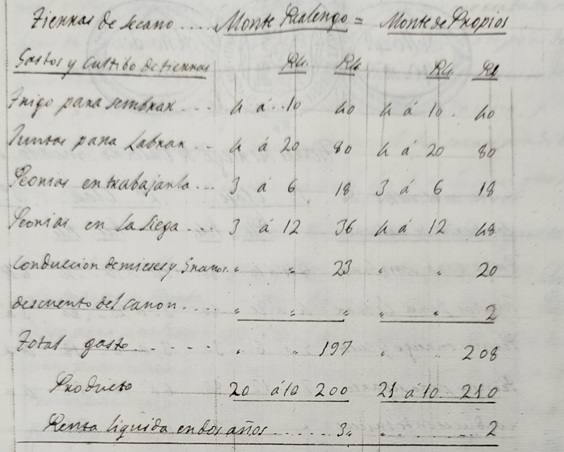 Tierras de secano .... Monte Realengo = Monte de Propios
Gastos y Cultibo de tierras Rs. Rs. Rs. Rs
Trigo para sembrar ... 4 á 10 40 4 á 10. 40
Juntas para Labrar ... 4 á 20 80 4 á 20 80
Peonías en trabajarla ... 3 á 6 18 3 á 6 18
Peonías en la siega ... 3 á 12 36 4 á 12 48
Conduccion de mieses y Granos. " " 23 " " 20
descuento del Canon .... " " " " " 2
Total gasto ...... " " 197 " " 208
Producto 20 á 10 200 21 á 10. 210
Renta liquida en dos años ...... 3 " ........ 2